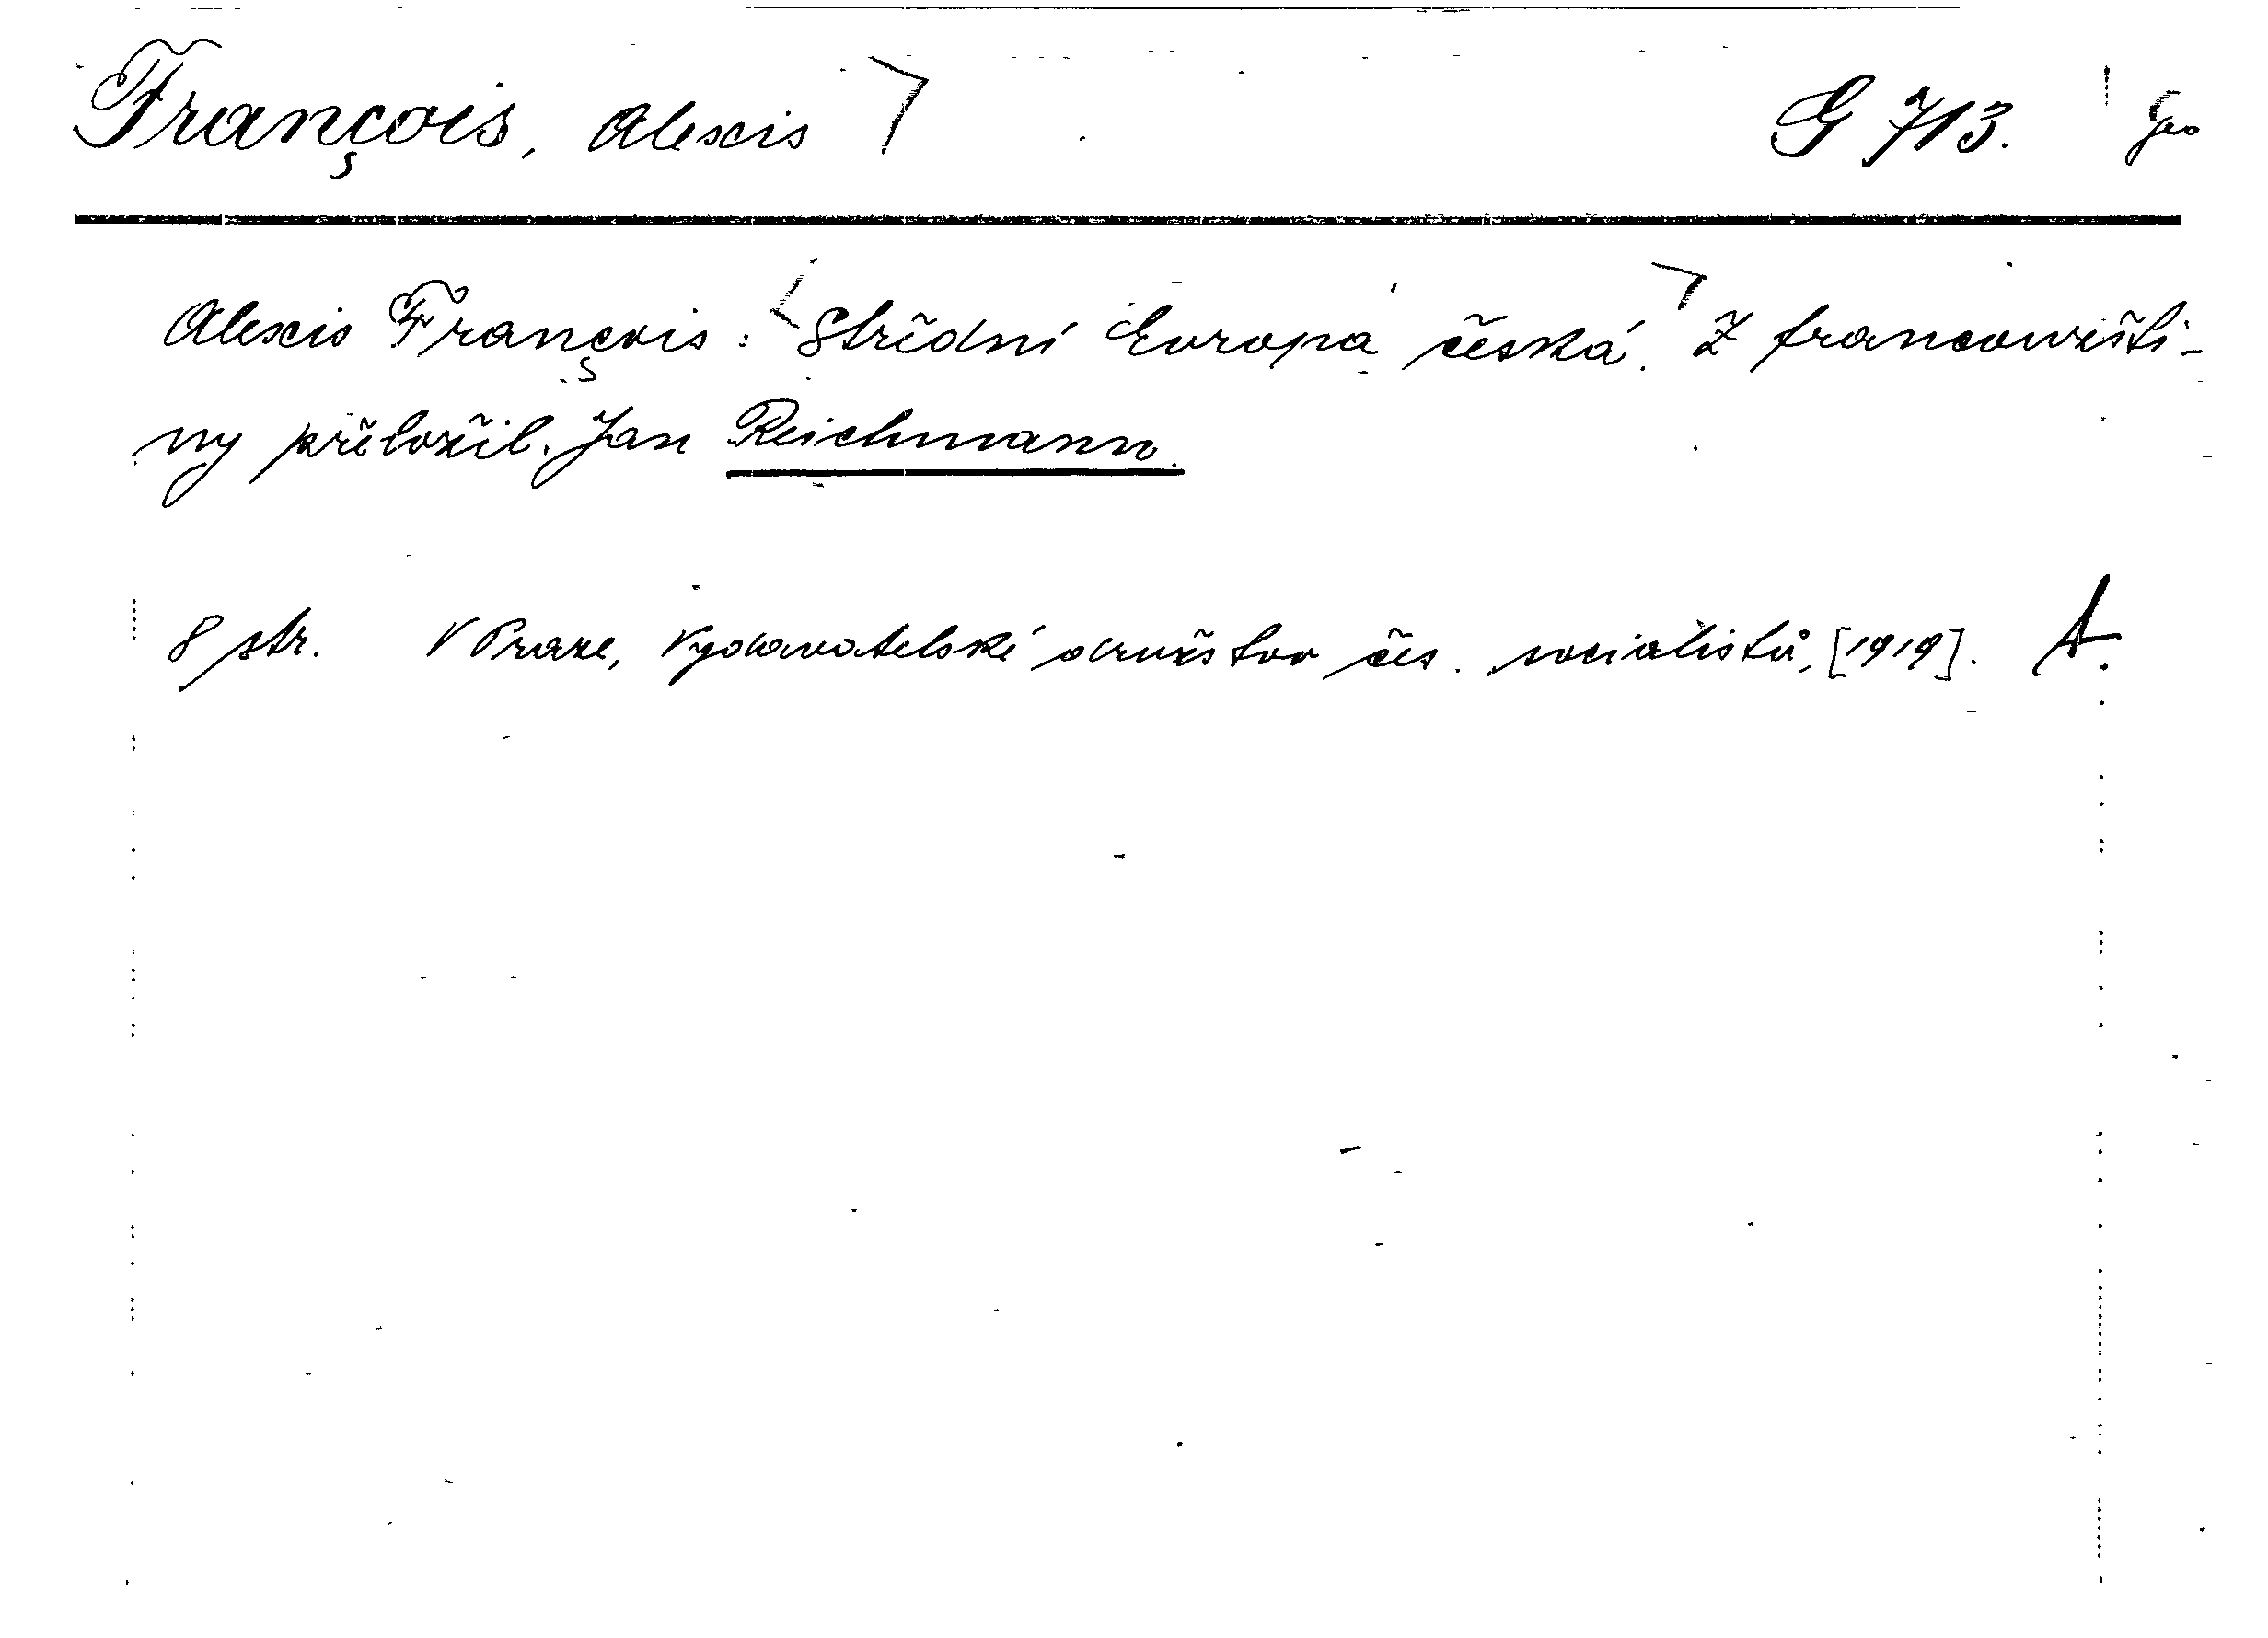 François, Alexis G 713. Geo
Alexis François: Střední Evropa česká. Z francouzšti-
ny přeložil Jan Reichmann.
8 str. V Praze, Vydavatelské družstvo čes. socialistů, [1919]. A.